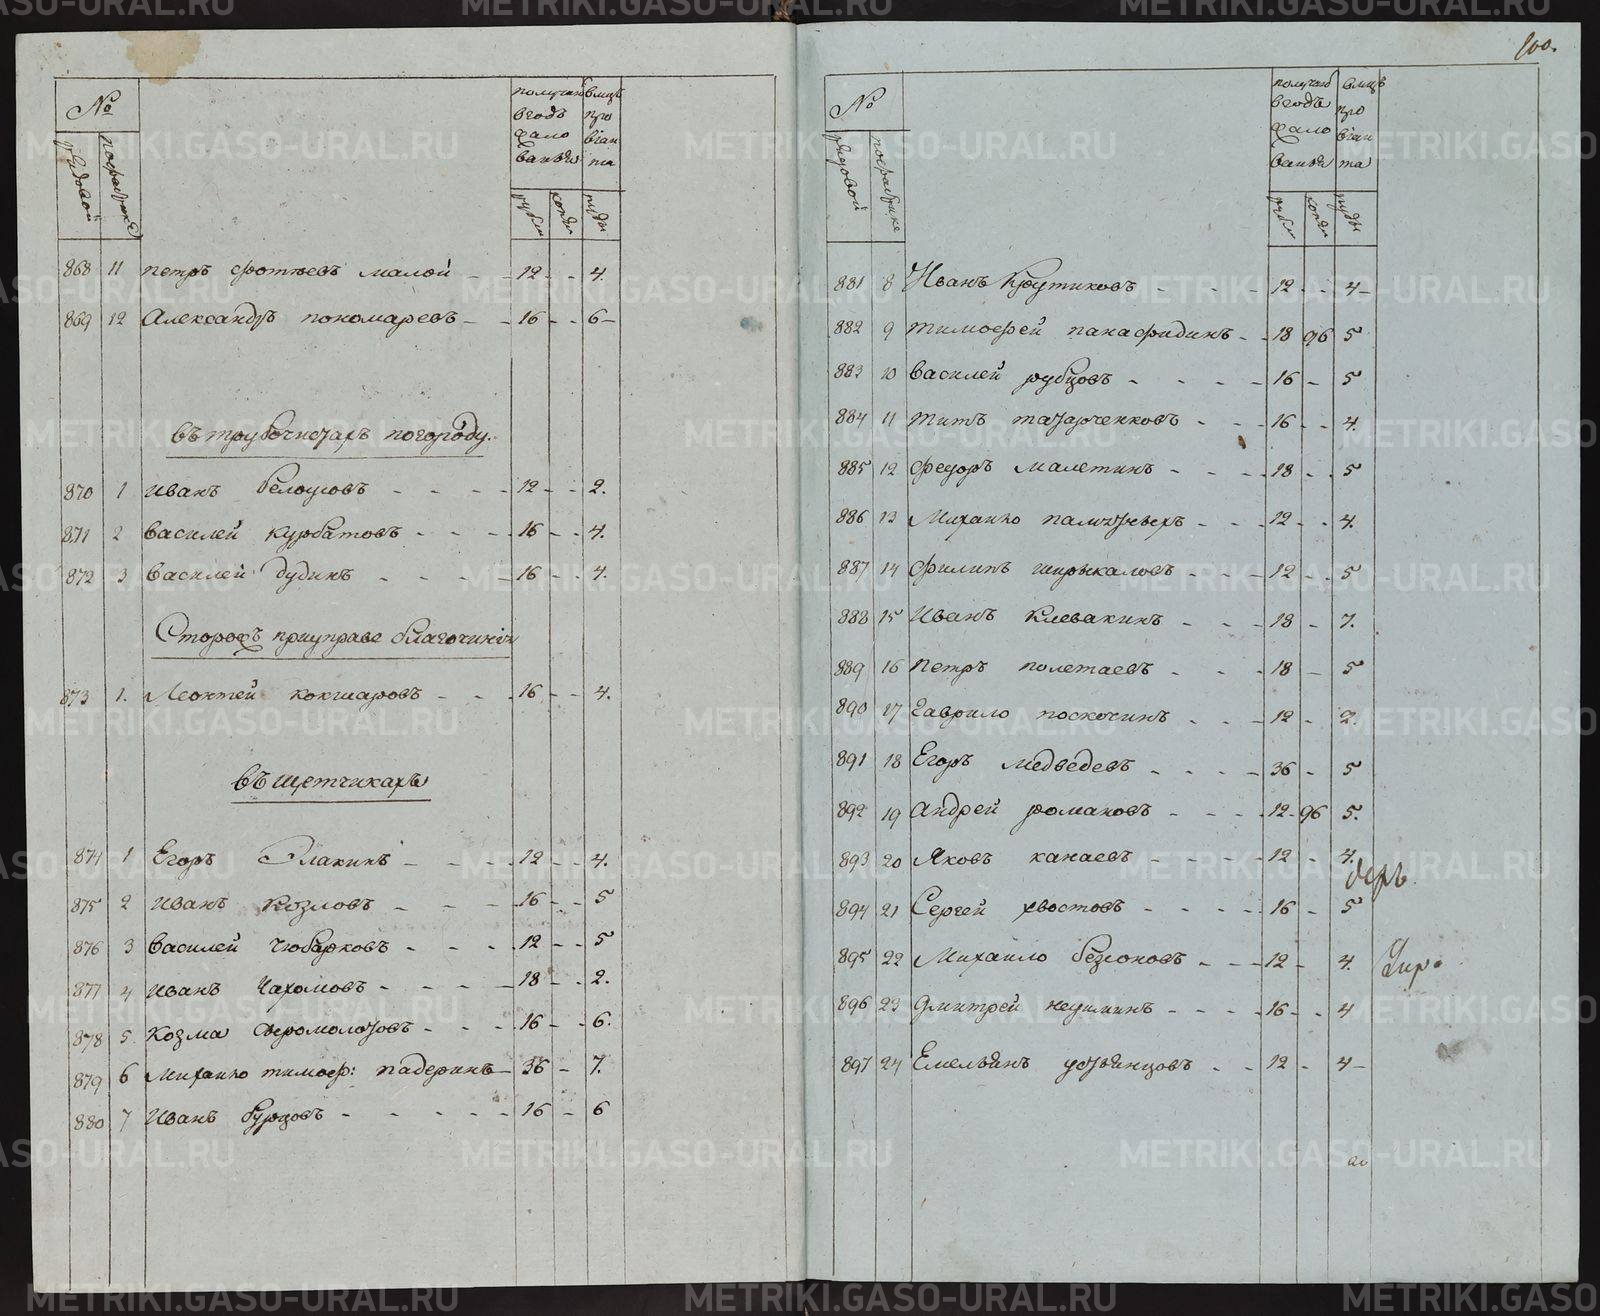 №
рядовой
пофабрике
получаютъ
вгодъ
жало
ванья
вмцъ
про
віан
та
рубли
копѣи
пуды
868 11 Петръ Фотѣевъ малой - - 12 - - 4.
869 12 Александръ пономаревъ - - 16 - - 6 -
въ трубочистахъ погороду.
870 1 Иванъ Белоусовъ - - - - 12 - - 2.
871 2 Василей Курбатовъ - - - - 16 - - 4.
872 3 Василей Дудинъ - - - - 16 - - 4.
Сторожъ приуправе благочинія
873 1. Леонтей кокшаровъ - - - 16 - - 4.
въ щетчикахъ
874 1 Егоръ Елакинъ - - - - 12 - - 4.
875 2 Иванъ Козловъ - - - - 16 - - 5
876 3 Василей Чюбарковъ - - - - 12 - - 5
877 4 Иванъ Пахомовъ - - - - 18 - - 2.
878 5. Козма - - - 16 - - 6.
879 6 Михаило тимоф: падеринъ - 36 - 7.
880 7 Иванъ бурцовъ - - - - - 16 - 6
100.
№
рядовой
пофабрике
получаютъ
вгодъ
жало
ванья
вмцъ
про
віан
та
рубли
копѣи
пуды
881 8 Иванъ Крутиковъ - - - 12 - - 4 -
882 9 тимофей панафидинъ - - 18 96 5
883 10 Василей рубцовъ - - - - 16 - 5
884 11 титъ татарченковъ - - - 16 - - 4.
885 12 федоръ малетинъ - - - - 18 - - 5
886 13 Михаило - - - 12 - - 4.
887 14 Филипъ ширыкаловъ - - - 12 - - 5
888 15 Иванъ Клевакинъ - - - 18 - 7.
889 16 Петръ полетаевъ - - - 18 - 5
890 17 Гаврило поскочинъ - - - 12 - 2.
891 18 Егоръ Медведевъ - - - - 36 - 5
892 19 андрей романовъ - - - - 12 - 96 5.
893 20 Яковъ канаевъ - - - - - 12 - 4.
894 21 Сергей хвостовъ - - - - 16 - 5
895 22 Михаило безсоновъ - - - 12 - 4.
896 23 Дмитрей - - - - 16 - - 4
897 24 Емельянъ устьянцовъ - - 12 - 4 -
METRIKI.GASO-URAL.RU